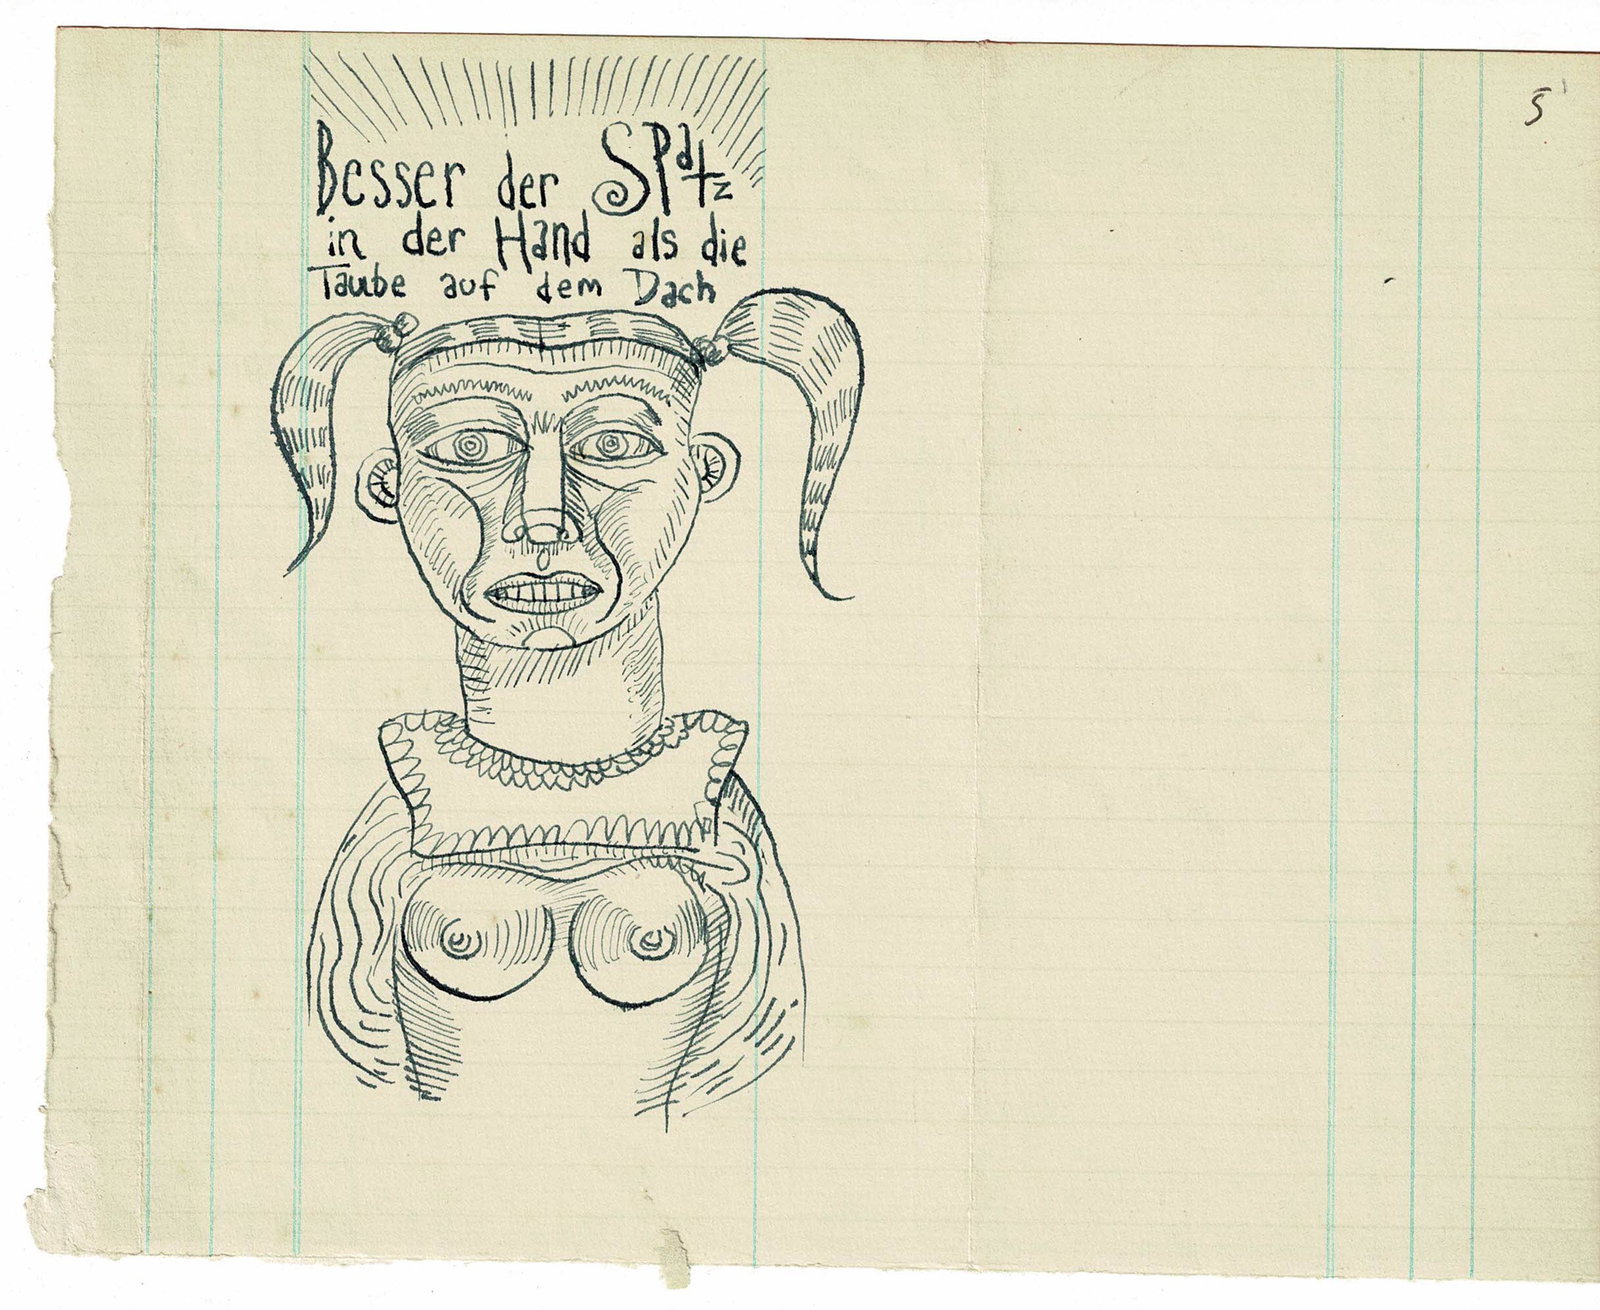 Besser der Spatz
in der Hand als die
Taube auf dem Dach
5